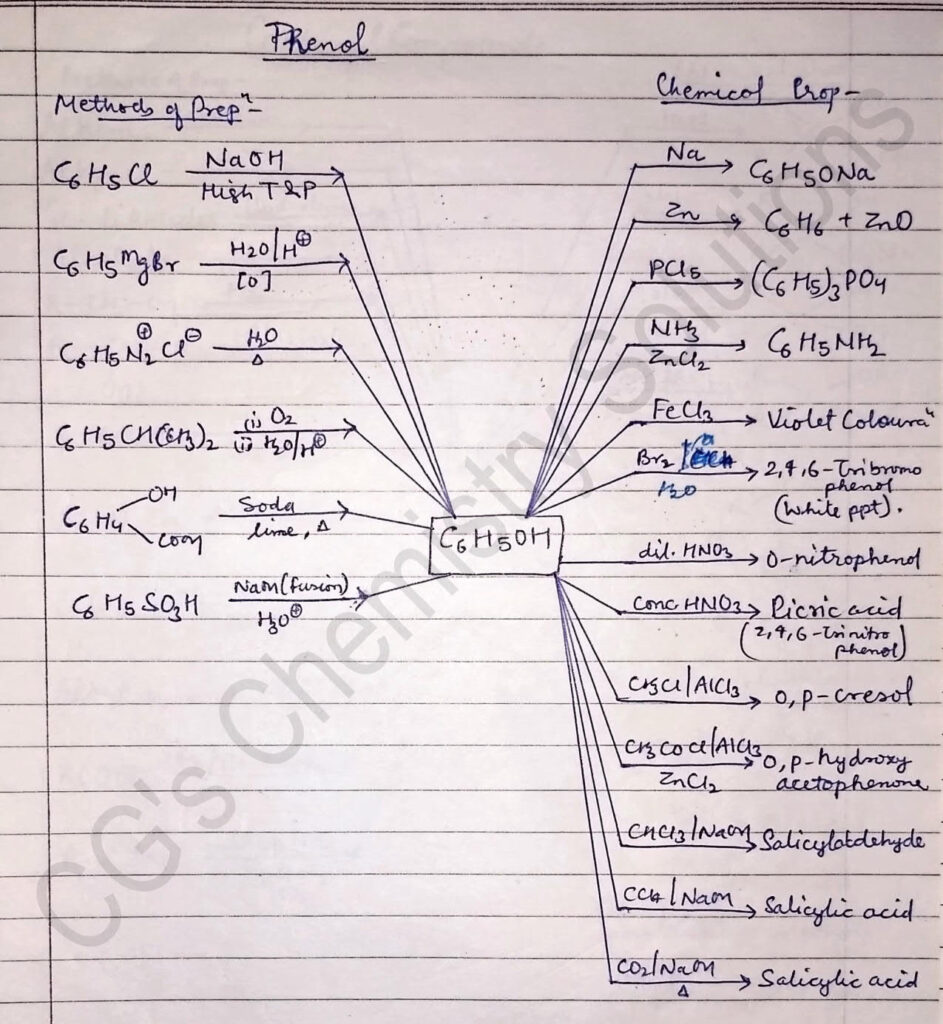 Phenol
Methods of Prepⁿ-
C6H5Cl NaOH
High T & P
C6H5MgBr H2O/H⊕
[O]
C6H5N2⊕Cl⊖ H2O
Δ
C6H5CH(CH3)2 (i) O2
(ii) H2O/H⊕
C6H4 OH
COOH
Soda
lime, Δ
C6H5SO3H NaOH (fusion)
H3O⊕
C6H5OH
Chemical Prop-
Na C6H5ONa
Zn C6H6 + ZnO
PCl5 (C6H5)3PO4
NH3 C6H5NH2
ZnCl2
FeCl3 Violet Colouraⁿ
Br2 2,4,6-Tribromo
H2O phenol
(White ppt).
dil. HNO3 O-nitrophenol
Conc HNO3 Picric acid
(2,4,6-Trinitro
phenol)
CH3Cl/AlCl3 O,p-cresol
CH3COCl/AlCl3 O,p-hydroxy
ZnCl2 acetophenone
CHCl3/NaOH Salicylaldehyde
CCl4/NaOH Salicylic acid
CO2/NaOH Salicylic acid
Δ
CG's Chemistry Solutions